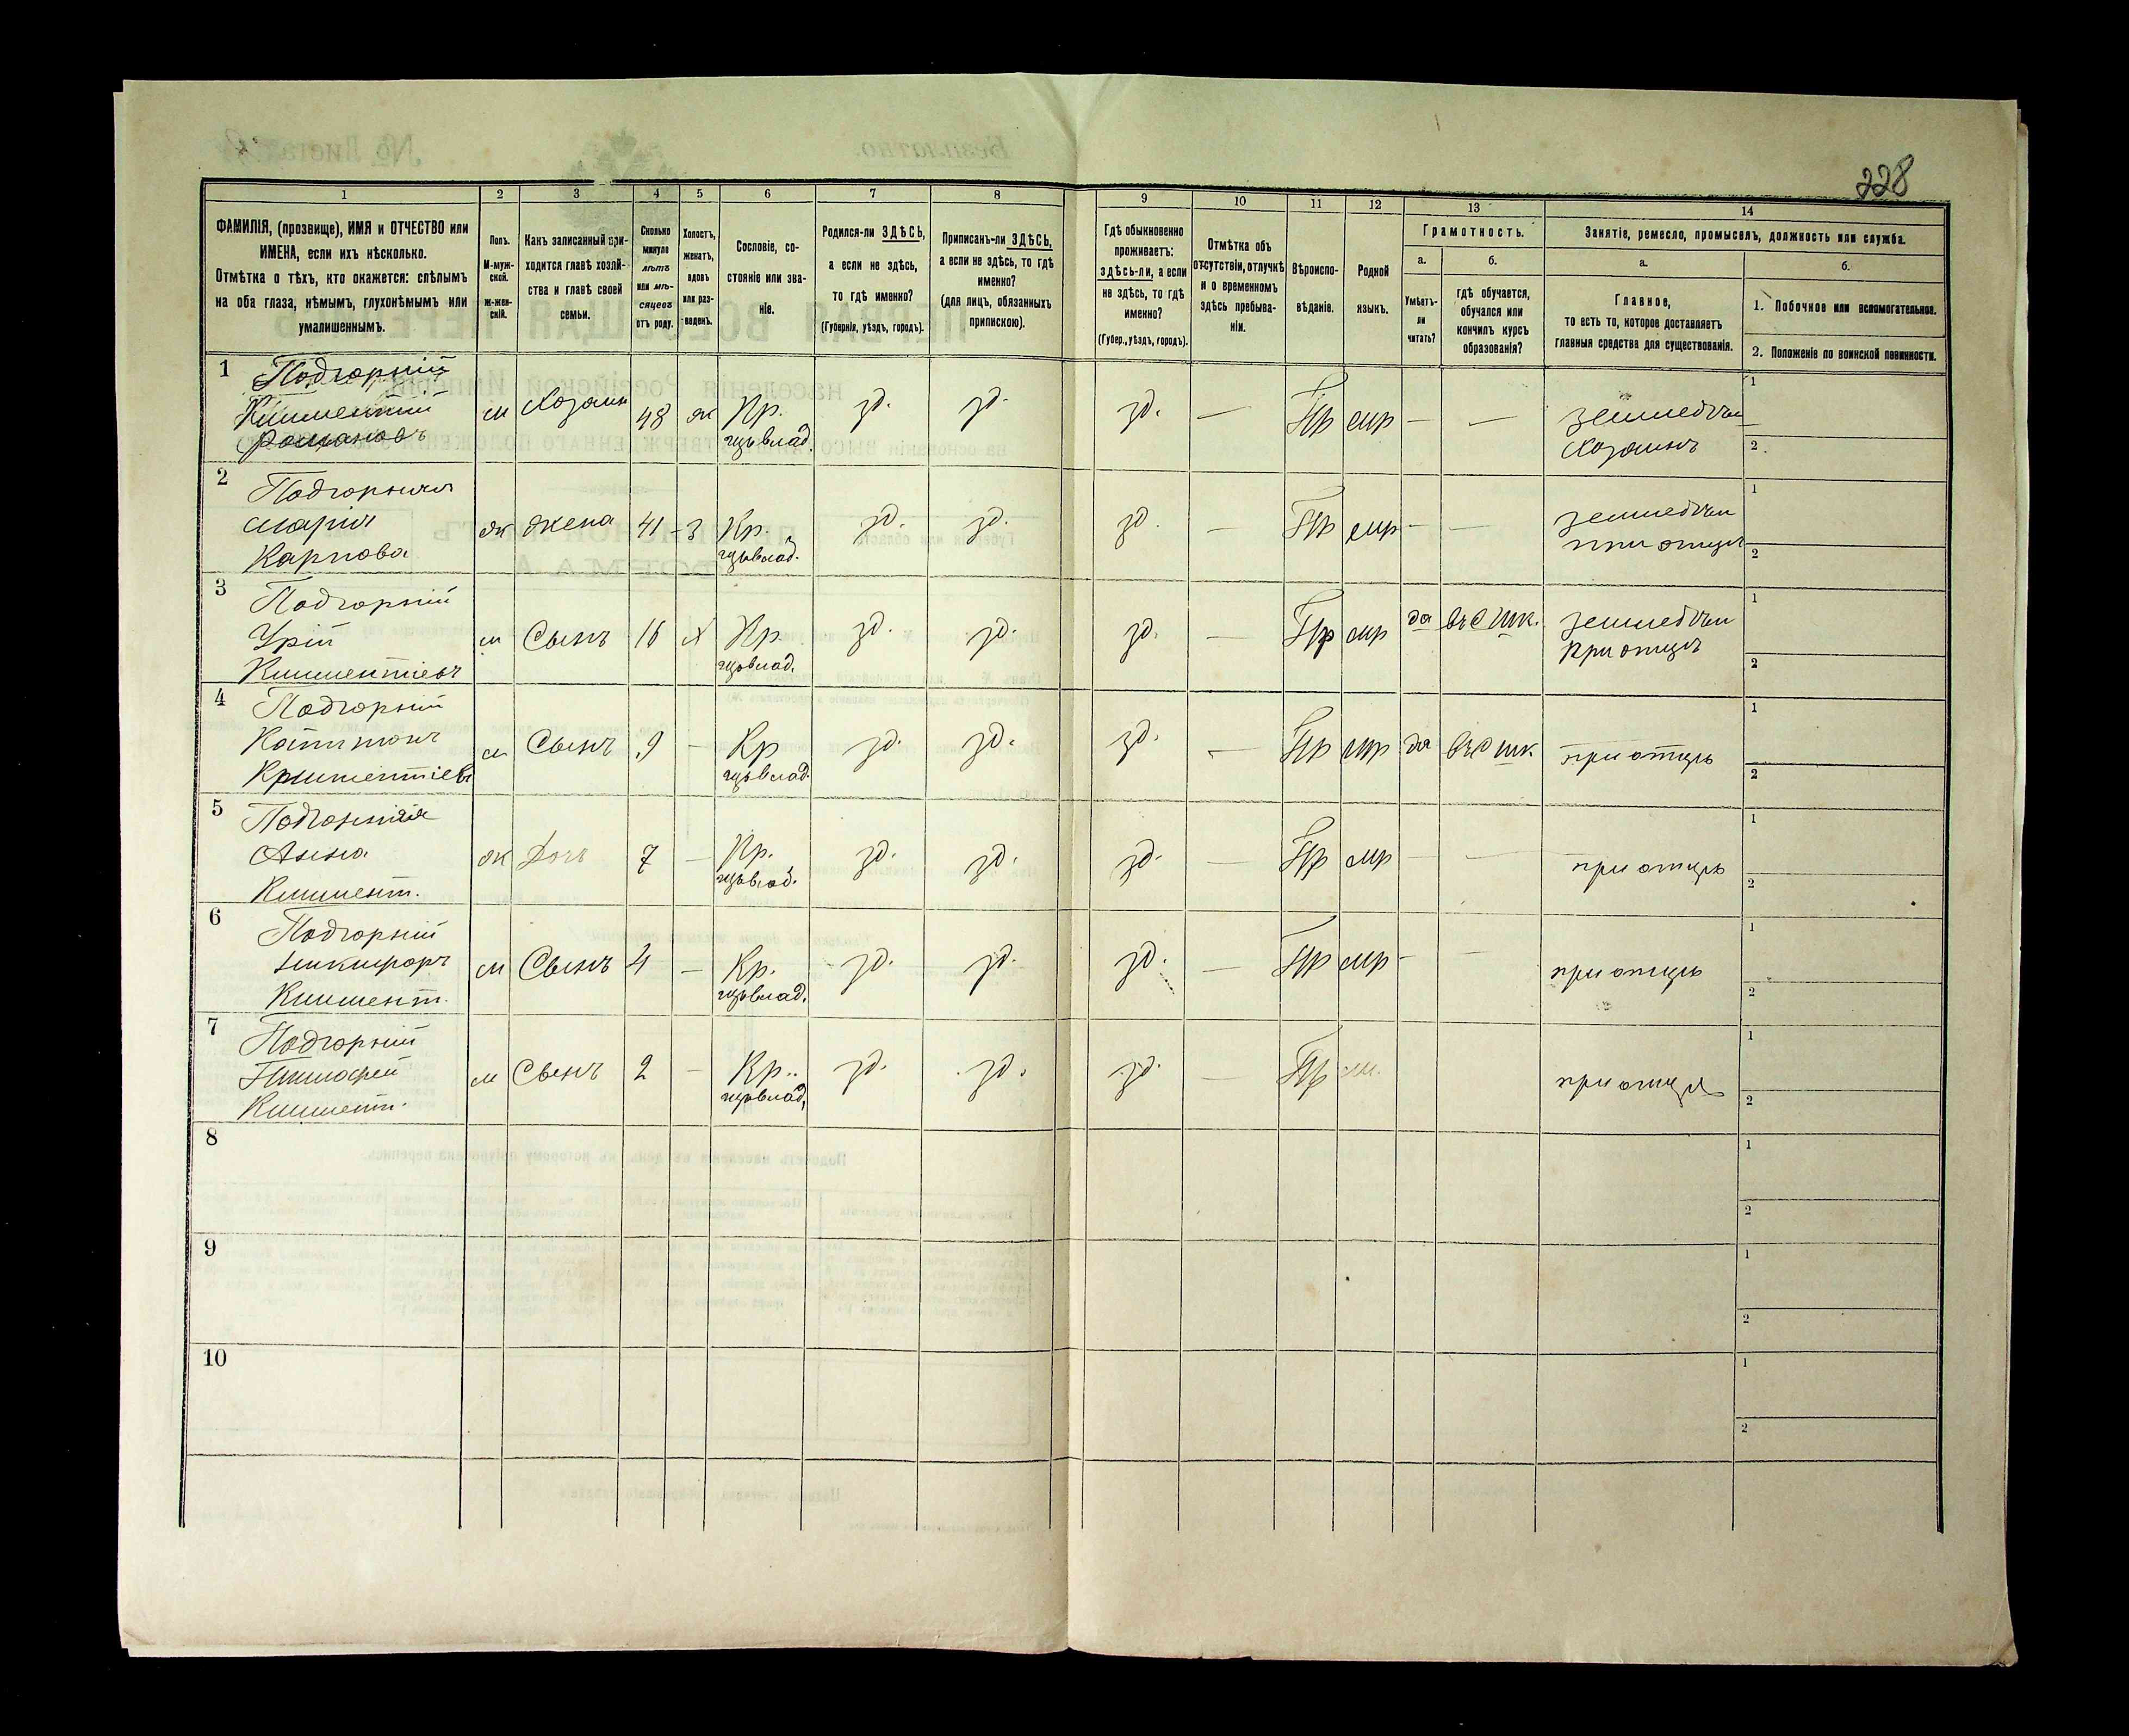 228
1 2 3 4 5 6 7 8 9 10 11 12 13 14
ФАМИЛІЯ, (прозвище), ИМЯ и ОТЧЕСТВО или
ИМЕНА, если ихъ нѣсколько.
Отмѣтка о тѣхъ, кто окажется: слѣпымъ
на оба глаза, нѣмымъ, глухонѣмымъ или
умалишеннымъ.
Полъ.
М-муж-
ской.
Ж-жен-
скій.
Какъ записанный при-
ходится главѣ хозяй-
ства и главѣ своей
семьи.
Сколько
минуло
лѣтъ
или мѣ-
сяцевъ
отъ роду.
Холостъ,
женатъ,
вдовъ
или раз-
веденъ.
Сословіе, со-
стояніе или зва-
ніе.
Родился-ли ЗДѢСЬ,
а если не здѣсь,
то гдѣ именно?
(Губернія, уѣздъ, городъ).
Приписанъ-ли ЗДѢСЬ,
а если не здѣсь, то гдѣ
именно?
(для лицъ, обязанныхъ
припискою).
Гдѣ обыкновенно
проживаетъ:
здѣсь-ли, а если
не здѣсь, то гдѣ
именно?
(Губер., уѣздъ, городъ).
Отмѣтка объ
отсутствіи, отлучкѣ
и о временномъ
здѣсь пребыва-
ніи.
Вѣроиспо-
вѣданіе.
Родной
языкъ.
Грамотность.
а.
Умѣетъ-
ли
читать?
б.
гдѣ обучается,
обучался или
кончилъ курсъ
образованія?
Занятіе, ремесло, промыселъ, должность или служба.
а.
Главное,
то есть то, которое доставляетъ
главныя средства для существованія.
б.
1. Побочное или вспомогательное.
2. Положеніе по воинской повинности.
1 Подгорній
Климентій
Романовъ
м Хозяин 48 ж Кр. зд. зд. зд. — Пр мр — —
Хозяинъ
1
2
2 Подгорная
Марія
Карпова
ж жена 41 З Кр. зд. зд. зд. — Пр мр - —
1
2
3 Подгорній
Урій
Климентіевъ
м Сынъ 16 Х Кр. зд. зд. зд. — Пр мр да
при отцѣ
1
2
4 Подгорній
Капитонъ
м Сынъ 9 — Кр зд. зд. зд. — Пр мр да
при отцѣ
1
2
5
Анна
Климент.
ж Дочь 7 — Кр. зд. зд. зд. — Пр мр — —
при отцѣ
1
2
6 Подгорній
Никифоръ
Климент.
м Сынъ 4 — Кр. зд. зд. зд. — Пр мр - -
при отцѣ
1
2
7 Подгорній
Климент.
м Сынъ 2 — Кр. зд. зд. зд. — Пр
при отцѣ
1
2
8
1
2
9
1
2
10
1
2